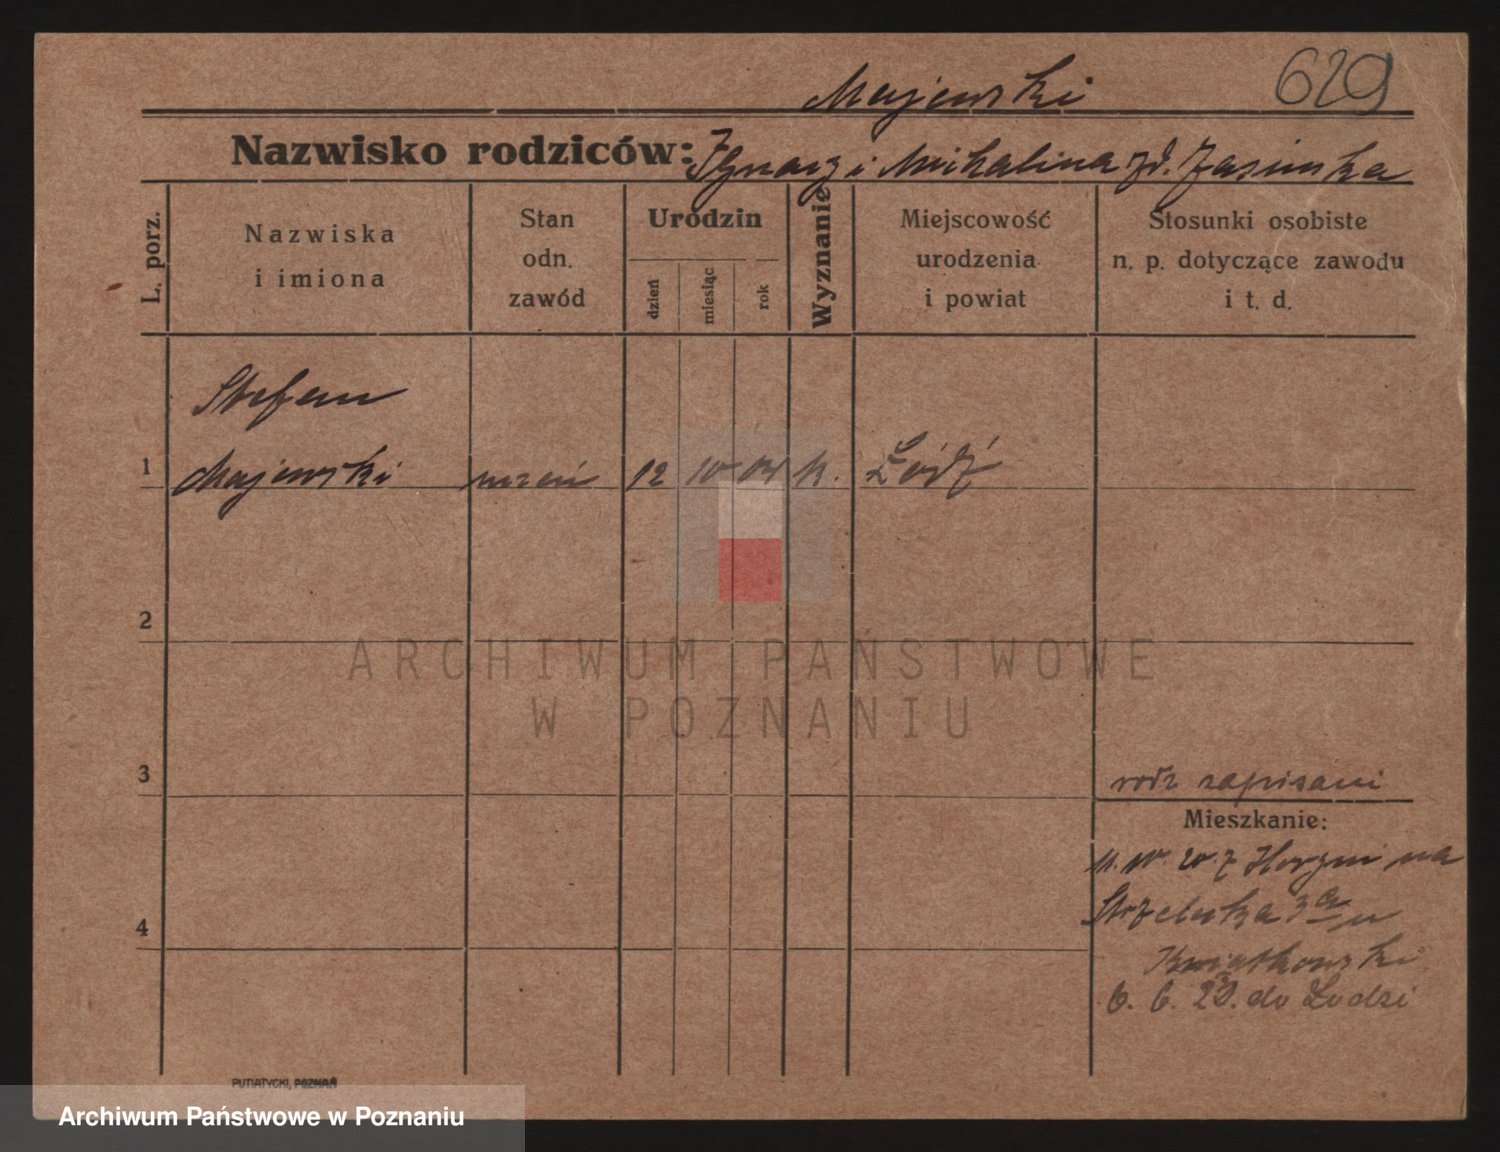 629
Majewski
Nazwisko rodziców: Ignacy i Michalina zd. Jasińska
L. porz.
Nazwiska
i imiona
Stan
odn.
zawód
Urodzin
dzień
miesiąc
rok
Wyznanie
Miejscowość
urodzenia
i powiat
Stosunki osobiste
n. p. dotyczące zawodu
i t. d.
Stefan
1 Majewski uczeń 12 10 04 k. Łódź
2
ARCHIWUM PAŃSTWOWE
W POZNANIU
3
rodz zapisani
Mieszkanie:
na
Strzelecka 3a
4
Kwiatkowski
6. 6. do Łodzi
PUTIATYCKI, POZNAŃ
Archiwum Państwowe w Poznaniu